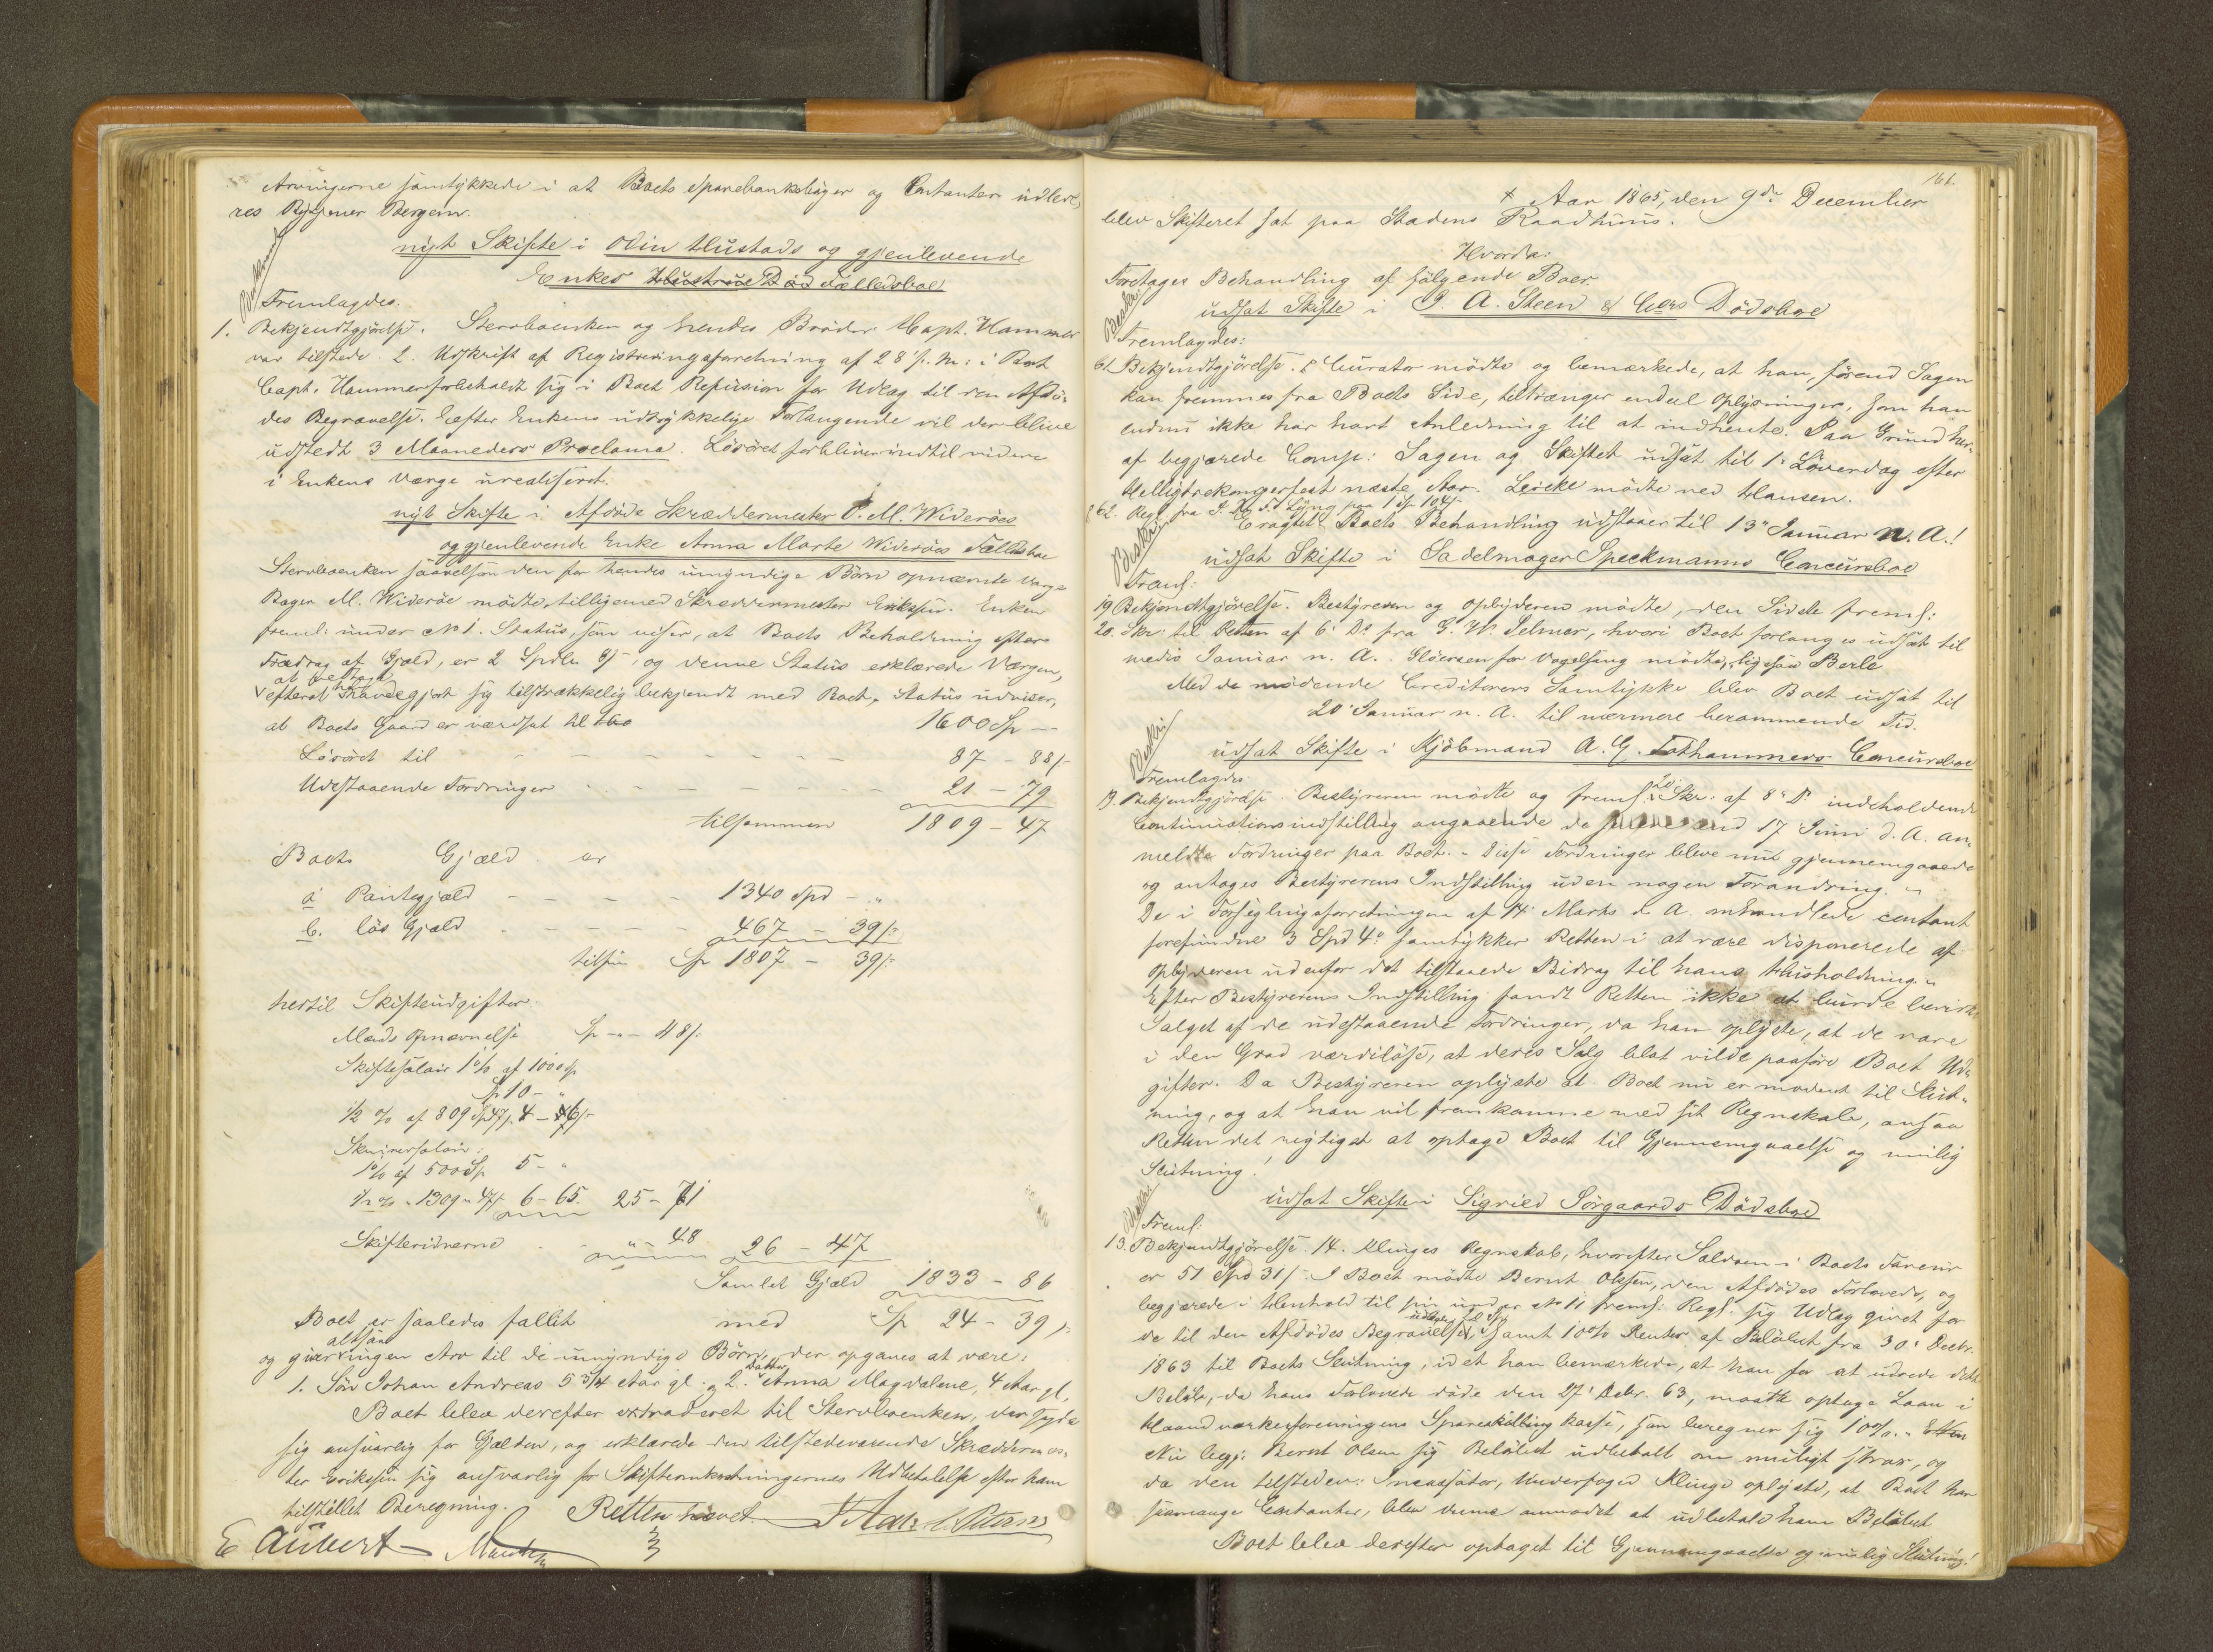 Arvingerne samtykkede i at Boets Sparebanksbøger og Contanter udleve-
res Bergem.
nyt Skifte i Odin Hustads og gjenlevende
Enkes Hustrue Død Fælledsboe
Fremlagdes.
1. Bekjendtgjørelse. Stervboenken og hendes Broder Capt. Hammer
var tilstede. 2. Udskrift af Registreringsforretning af 28 f. M: i Boet
Capt. Hammer forbeholdt sig i Boet Refusion for Udlæg til den Afdø-
des Begravelse. Efter Enkens udtrykkelige Forlangende vil der blive
udstedt 3 Maaneders Proclama. Løsøret forbliver indtil videre
i Enkens Værge urealiseret.
nyt Skifte i Afdøde Skræddermester O. M. Widerøes
og gjenlevende Enke Anna Marte Widerøes Fællesboe
Stervboenken saavelsom den for hendes umyndige Børn opnævnte Værge
Bager M. Widerøe mødte, tilligemed Skræddermester Eriksen. Enken
freml: under No 1. Status, som viser, at Boets Beholdning efter
Fradrag af Gjæld, er 2 Spdlr 8/-, og denne Status erklærede Værgen,
at være rigtig
efterat have gjort sig tilstrækkelig bekjendt med Boet. Status udviser,
at Boets Gaard er værdsat til 1600 Sp -
Løsøret til - - - - - - - 87 - 88/-
Udestaaende Fordringer - - - - - - 21 - 79
tilsammen 1809 - 47
Boets Gjæld er
a Pantegjæld - - - - 1340 Spd - "
b. løs Gjæld - - - - 467 - 39/-
tilsn Sp 1807 - 39/-
hertil Skifteudgifter.
Mænds Opnævnelse Sp - " - 48/-
Skiftesalair 1% af 1000 Sp
Sp 10 - "
1/2 % af 809 Sp 47/- 4 - 6/-
Skriversalair:
1% af 500 Sp 5 - "
1/2 % " 1309 " 47/- 6 - 65. 25 - 71
Skiftevidnerne " - 48 26 - 47
Samlet Gjæld 1833 - 86
Boet er saaledes fallit med Sp 24 - 39/-
altsaa
og giver ingen Arv til de umyndige Børn, der opgaves at være:
1. Søn Johan Andreas 5 3/4 Aar gl. og 2. Datter Anna Magdalene, 4 Aar gl.
Boet blev derefter extraderet til Stervboenken, der sagde
sig ansvarlig for Gjælden, og erklærede den tilstedeværende Skræddermes-
ter Eriksen sig ansvarlig for Skifteomkostningernes Udbetalelse efter ham
tilstillet Beregning. Retten hævet.
E Aubert
161.
Aar 1865, den 9de December
blev Skifteret sat paa Stadens Raadhuus.
Hvorda:
Foretages Behandling af følgende Boer.
udsat Skifte i J. A. Steen & Cos Dødsboe
Fremlagdes:
61. Bekjendtgjørelse. Curator mødte og bemærkede, at han, førend Sagen
kan fremmes fra Boets Side, tiltrænger endeel Oplysninger, som han
endnu ikke har havt Anledning til at indhente. Paa Grund her-
af begjærede Comp: Sagen og Skiftet udsat til 1ste Løverdag efter
Helligtrekongersfest næste Aar. Lericke mødte ved Hansen.
62. Regn. fra Lyng paa 1 Sp 104/-
Eragtet Boets Behandling udstaaer til 13de Januar n. A.!
udsat Skifte i Sadelmager Speckmanns Concursboe
Freml:
19. Bekjendtgjørelse. Bestyreren og Opbyderen mødte, den Sidste freml:
20. Skr: til Retten af 6te Ds fra G. W. Selmer, hvori Boet forlanges udsat til
medio Januar n. A. Gløersen for Vogelsang mødte, ligesaa Berle
Med de mødende Creditorers Samtykke blev Boet udsat til
20de Januar n. A. til nærmere berammende Tid.
udsat Skifte i Kjøbmand A. G. Tokhammers Concursboe
Fremlagdes
19. Bekjendtgjørelse. Bestyreren mødte og freml: 20 Skr. af 8de Ds indeholdende
Continuationsindstilling angaaende de senere end 17 Juni d. A. an-
meldte Fordringer paa Boet. - Disse Fordringer bleve nu gjennemgaaede
og antoges Bestyrerens Indstilling uden nogen Forandring. "
De i Forseglingsforretningen af 14 Marts d. A. omhandlede contant
forefundne 3 Spd 4/- samtykker Retten i at være disponerede af
Opbyderen udenfor det tilstaaede Bidrag til hans Huusholdning. "
Efter Bestyrerens Indstilling fandt Retten ikke at burde bevirke
Salget af de udestaaende Fordringer, da han oplyste, at de vare
i den Grad værdiløse, at deres Salg blot vilde paaføre Boet Ud-
gifter. Da Bestyreren oplyste at Boet nu er modent til Slut-
ning, og at han vil fremkomme med sit Regnskab, ansaa
Retten det rigtigst at optage Boet til Gjennemgaaelse og muulig
Slutning!
udsat Skifte i Sigrild Sørgaards Dødsboe
Freml:
13. Bekjendtgjørelse. 14. Klinges Regnskab, hvorefter Saldoen i Boets Faveur
er 51 Spd 31/-. I Boet mødte Bernt Olsen, den Afdødes Forlovede, og
begjærede i Henhold til sin under No 11 freml: Regn. sig Udlæg givet for
de til den Afdødes Begravelse udlagte Sp, samt 10% Renter af Beløbet fra 30te Decbr.
1863 til Boets Slutning, idet han bemærkede, at han for at udrede dette
Beløb, da hans Forlovede døde den 27de Decbr. 63, maatte optage Laan i
Haandværkerforeningens Spareskilling kasse, som beregner sig 10%.
Nu begj: Bernt Olsen sig Beløbet udbetalt om muligt strax, og
da den tilstedev: Incassator, Underfoged Klinge oplyste, at Boet har
saamange Contanter, blev denne anmodet at udbetale ham Beløbet
Boet blev derefter optaget til Gjennemgaaelse og muulig Slutning!